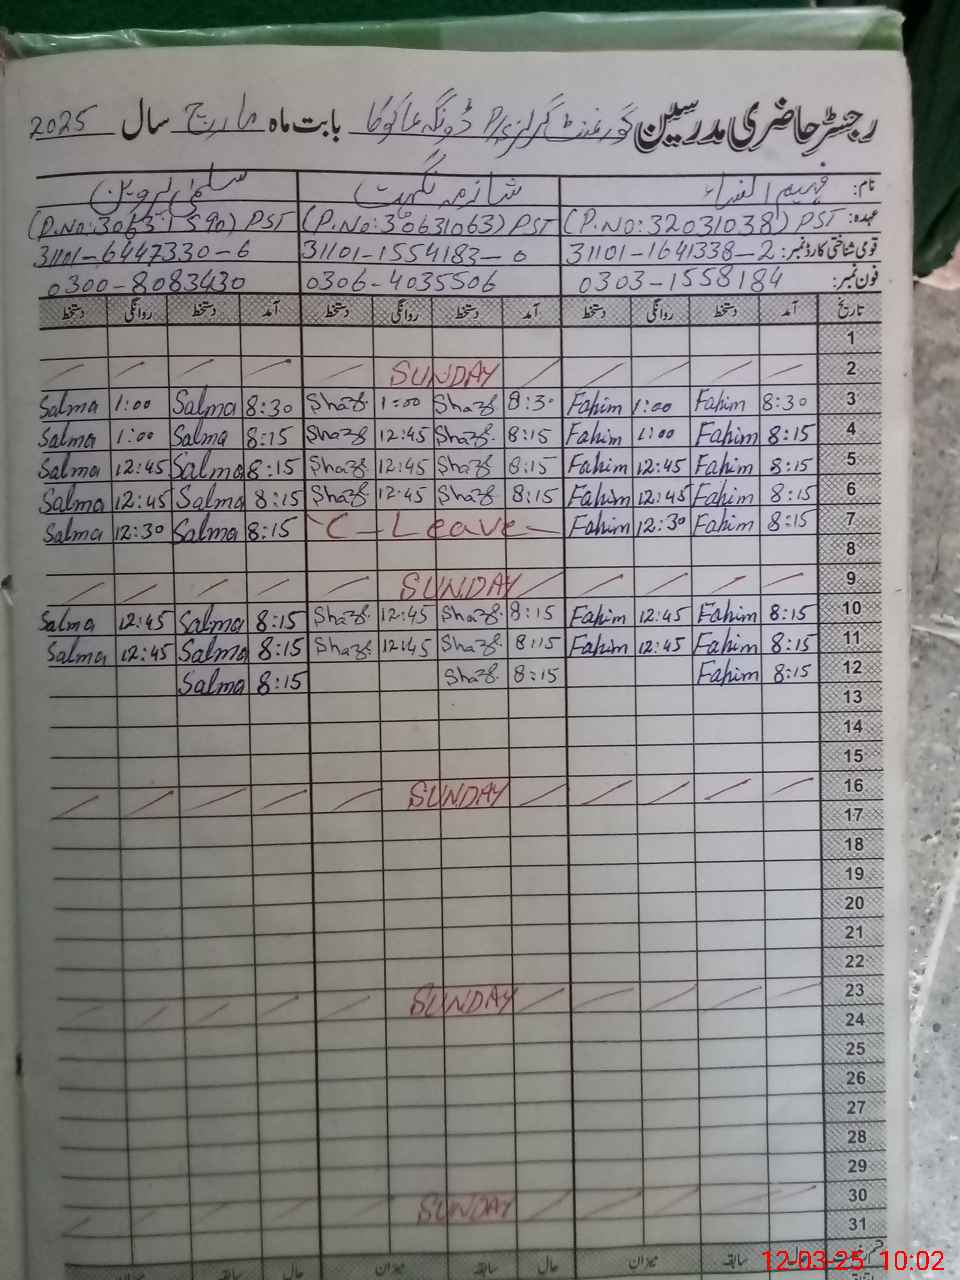 رجسٹر حاضری مدرسین گورنمنٹ گرلز P/S ڈونگہ عاکوکا بابت ماہ مارچ سال 2025
نام: فہیم النساء شازیہ نگہت سلمیٰ پروین
عہدہ: (P.No:32031038) PST (P.No:30631063) PST (P.No:30631590) PST
قومی شناختی کارڈ نمبر: 31101-1641338-2 31101-1554183-0 31101-6447330-6
فون نمبر: 0303-1558184 0306-4035506 0300-8083430
تاریخ آمد دستخط روانگی دستخط آمد دستخط روانگی دستخط آمد دستخط روانگی دستخط
1
SUNDAY 2
Salma 1:00 Salma 8:30 Shazf 1:00 Shazf 8:30 Fahim 1:00 Fahim 8:30 3
Salma 1:00 Salma 8:15 Shazf 12:45 Shazf 8:15 Fahim 1:00 Fahim 8:15 4
Salma 12:45 Salma 8:15 Shazf 12:45 Shazf 8:15 Fahim 12:45 Fahim 8:15 5
Salma 12:45 Salma 8:15 Shazf 12:45 Shazf 8:15 Fahim 12:45 Fahim 8:15 6
Salma 12:30 Salma 8:15 C-Leave Fahim 12:30 Fahim 8:15 7
8
SUNDAY 9
Salma 12:45 Salma 8:15 Shazf 12:45 Shazf 8:15 Fahim 12:45 Fahim 8:15 10
Salma 12:45 Salma 8:15 Shazf 12:45 Shazf 8:15 Fahim 12:45 Fahim 8:15 11
Salma 8:15 Shazf 8:15 Fahim 8:15 12
13
14
15
SUNDAY 16
17
18
19
20
21
22
SUNDAY 23
24
25
26
27
28
29
SUNDAY 30
31
حال سابقہ میزان حال سابقہ میزان حال سابقہ میزان
12-03-25 10:02